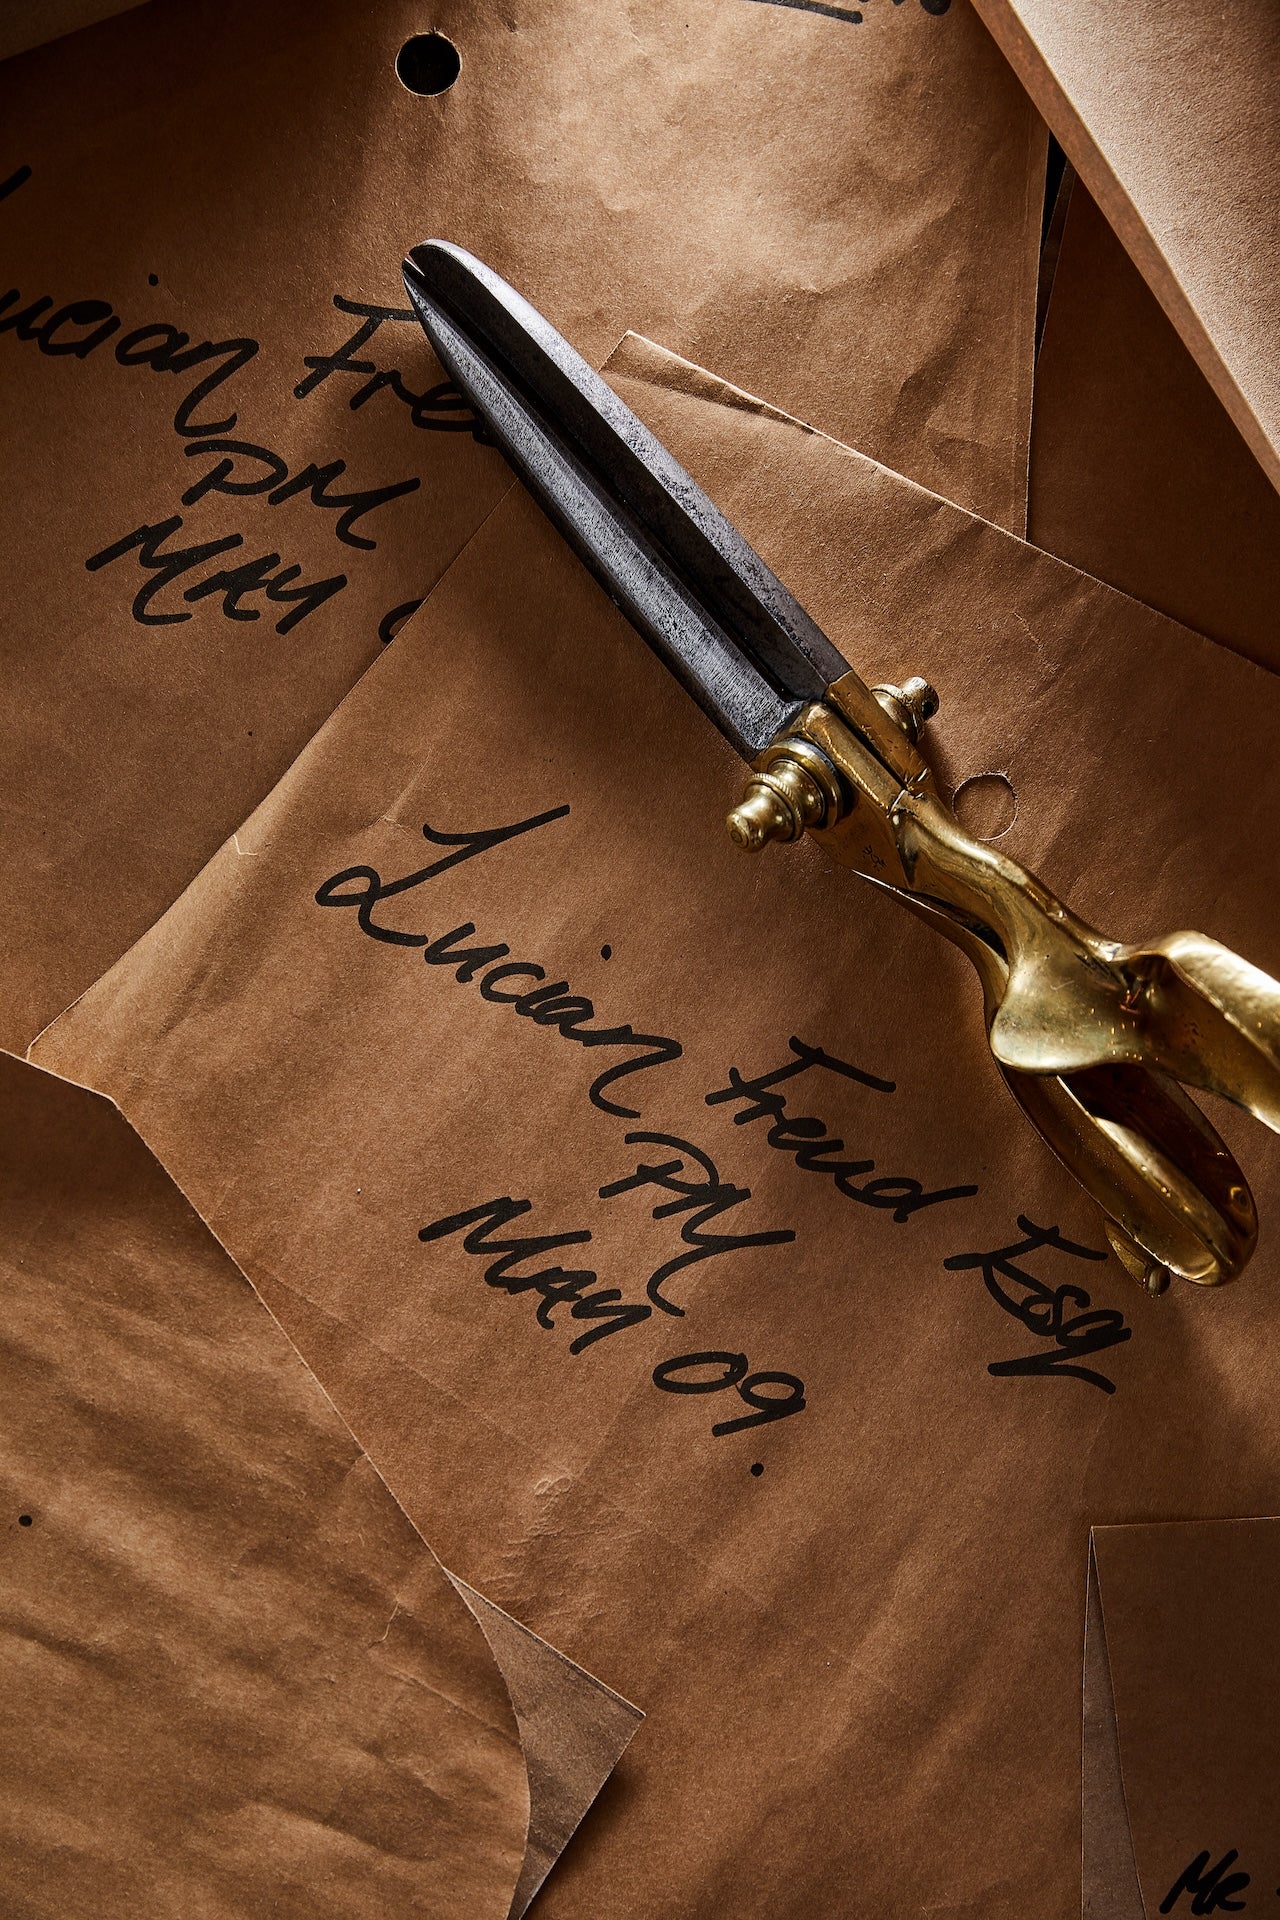 Lucian Fre
PM
MAY
Lucian Freud Esq
PM
MAY 09.
MR